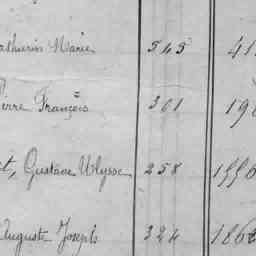 athurin Marie 545 41
ierre François 301 19
t, Gustave Ulysse 258 1556
Auguste Joseph 324 186